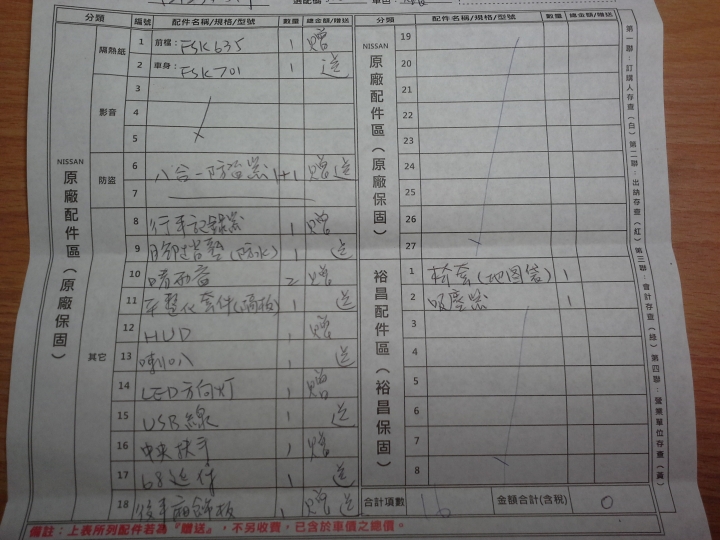 分類 編號 配件名稱/規格/型號 數量 總金額/贈送
NISSAN
原廠配件區(原廠保固)
隔熱紙
1 前檔:FSK635 1 贈
2 車身:FSK701 1 送
影音
3
4
5
防盜
6 八合一防盜器 1+1 贈送
7
其它
8 行車記錄器 1 贈
9 腳踏墊(防水) 1 送
10 2 贈
11 1 送
12 HUD 1 贈
13 喇叭 1 送
14 LED方向灯 1 贈
15 USB線 1 送
16 中央扶手 1 贈
17 1 送
18 1 贈送
分類 配件名稱/規格/型號 數量 總金額/贈送
NISSAN
原廠配件區(原廠保固)
19
20
21
22
23
24
25
26
27
裕昌配件區(裕昌保固)
1 椅套(地図袋) 1
2 吸塵器 1
3
4
5
6
7
8
合計項數 16 金額合計(含稅) 0
第一聯:訂購人存查(白)第二聯:出納存查(紅)第三聯:會計存查(綠)第四聯:營業單位存查(黃)
備註:上表所列配件若為『贈送』,不另收費,已含於車價之總價。